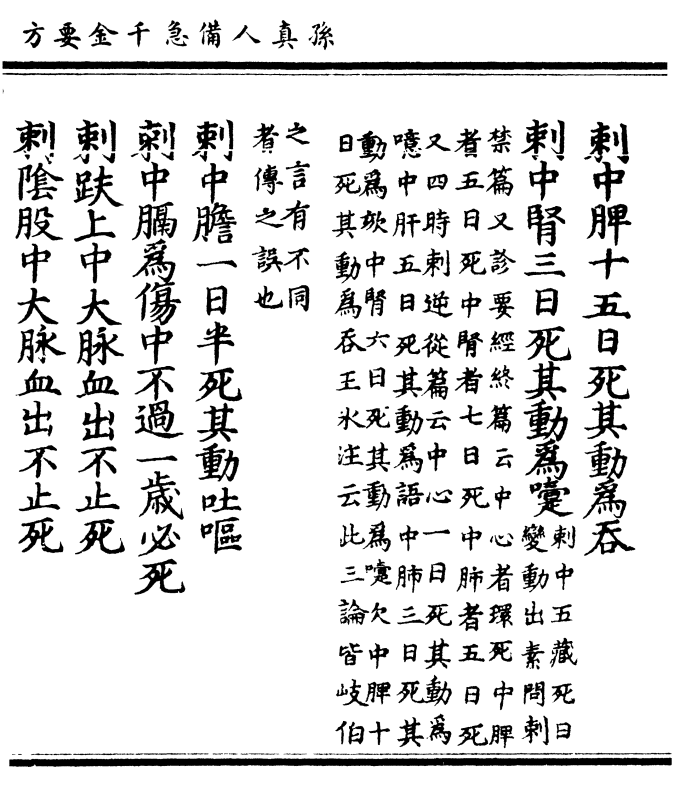 孫真人備急千金要方
刺中脾十五日死其動爲吞
刺中腎三日死其動爲嚏
刺中五藏死日
變動出素問刺
禁篇又診要經終篇云中心者環死中脾
者五日死中腎者七日死中肺者五日死
又四時刺逆從篇云中心一日死其動爲
噫中肝五日死其動爲語中肺三日死其
動爲欬中腎六日死其動爲嚏欠中脾十
日死其動爲吞王氷注云此三論皆岐伯
之言有不同
者傳之誤也
刺中膽一日半死其動吐嘔
刺中膈爲傷中不過一歲必死
刺趺上中大脉血出不止死
刺陰股中大脉血出不止死